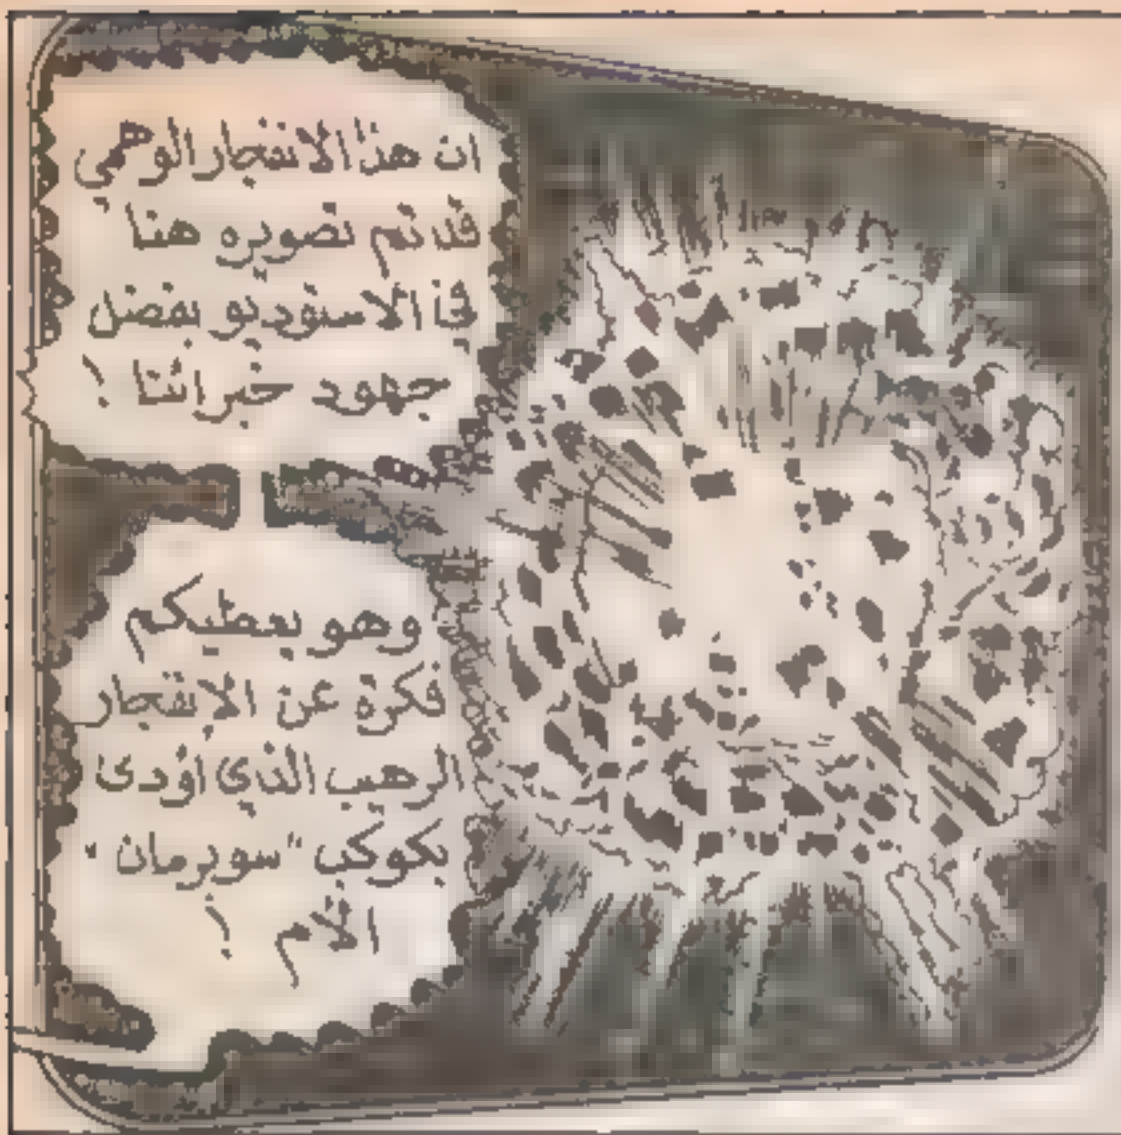 ان هذا الانفجار الوهمي
قد تم تصويره هنا
في الاستوديو بفضل
جهود خبرائنا !
وهو يعطيكم
فكرة عن الانفجار
الرهيب الذي اودى
بكوكب "سوبرمان"
الأم !